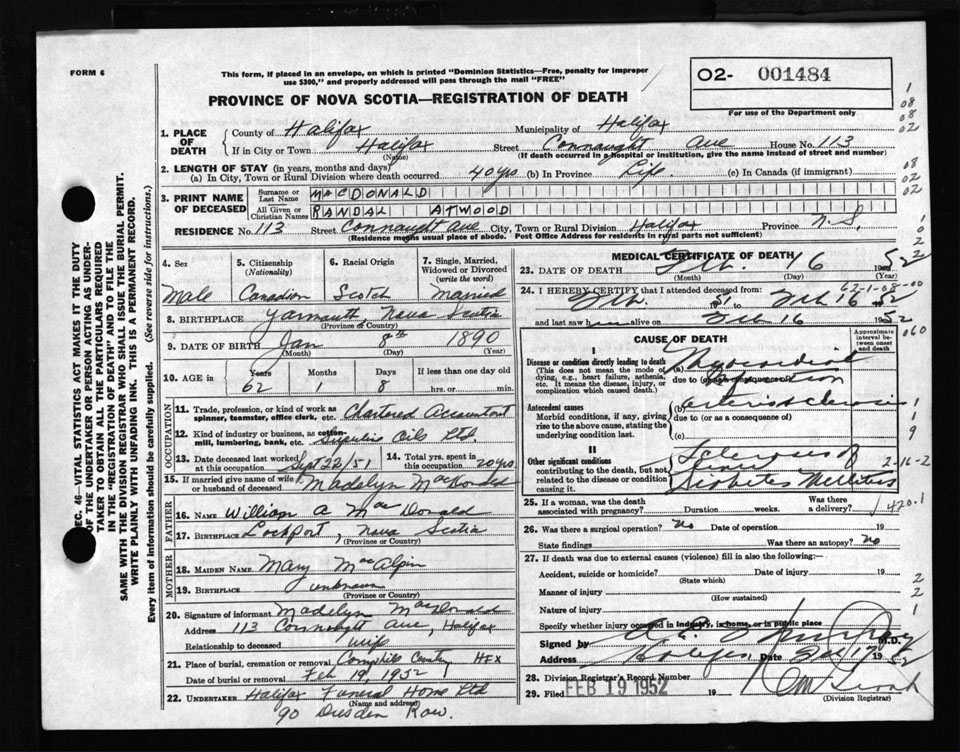 FORM 6
This form, if placed in an envelope, on which is printed "Dominion Statistics—Free, penalty for improper
use $300," and properly addressed will pass through the mail "FREE"
O2- 001484
For use of the Department only
PROVINCE OF NOVA SCOTIA—REGISTRATION OF DEATH
1. PLACE OF DEATH
County of Halifax Municipality of Halifax
If in City or Town Halifax Street Connaught Ave House No. 113
(Name) (If death occurred in a hospital or institution, give the name instead of street and number)
2. LENGTH OF STAY (in years, months and days)
(a) In City, Town or Rural Division where death occurred 40 yrs (b) In Province Life (c) In Canada (if immigrant)
3. PRINT NAME OF DECEASED
Surname or Last Name MACDONALD
All Given or Christian Names RANDAL ATWOOD
RESIDENCE No. 113 Street Connaught Ave City, Town or Rural Division Halifax Province N.S.
(Residence means usual place of abode. Post Office Address for residents in rural parts not sufficient)
4. Sex Male
5. Citizenship (Nationality) Canadian
6. Racial Origin Scotch
7. Single, Married, Widowed or Divorced (write the word) married
8. BIRTHPLACE Yarmouth, Nova Scotia
(Province or Country)
9. DATE OF BIRTH Jan 8th 1890
(Month) (Day) (Year)
10. AGE in Years Months Days If less than one day
62 1 8 hrs. or min.
OCCUPATION
11. Trade, profession, or kind of work as spinner, teamster, office clerk, etc. Chartered Accountant
12. Kind of industry or business, as cotton-mill, lumbering, bank, etc. Oils Ltd.
13. Date deceased last worked at this occupation Sept 22/51
14. Total yrs. spent in this occupation 20 yrs
15. If married give name of wife or husband of deceased Madelyn MacDonald
FATHER
16. NAME William A MacDonald
17. BIRTHPLACE Lockport, Nova Scotia
(Province or Country)
MOTHER
18. MAIDEN NAME Mary MacAlpin
19. BIRTHPLACE unknown
(Province or Country)
20. Signature of informant Madelyn MacDonald
Address 113 Connaught Ave, Halifax
Relationship to deceased wife
21. Place of burial, cremation or removal HFX
Date of burial or removal Feb 19, 1952
22. UNDERTAKER Halifax Funeral Home Ltd
(Name and address)
90 Dresden Row.
MEDICAL CERTIFICATE OF DEATH
23. DATE OF DEATH Feb. 16 1952
(Month) (Day) (Year)
24. I HEREBY CERTIFY that I attended deceased from
Feb. 1951 to Feb 16 1952
and last saw h im alive on Feb 16 1952
CAUSE OF DEATH
Approximate interval between onset and death
I
Disease or condition directly leading to death
(This does not mean the mode of dying, e.g., heart failure, asthenia, etc. It means the disease, injury, or complication which caused death.)
(a) Myocardial Infarction
due to (or as a consequence of)
Antecedent causes
Morbid conditions, if any, giving rise to the above cause, stating the underlying condition last.
(b) arteriosclerosis
due to (or as a consequence of)
(c)
II
Other significant conditions
contributing to the death, but not related to the disease or condition causing it.
Diabetes Mellitus
25. If a woman, was the death associated with pregnancy? Duration weeks. Was there a delivery?
26. Was there a surgical operation? No Date of operation 19
State findings Was there an autopsy? No
27. If death was due to external causes (violence) fill in also the following:—
Accident, suicide or homicide? Date of injury 19
(State which)
Manner of injury
(How sustained)
Nature of injury
Specify whether injury occurred in industry, in home, or in public place
Signed by M.D.
Address Halifax Date 19 52
28. Division Registrar's Record Number
29. Filed FEB 19 1952 19
(Division Registrar)
SEC. 46—VITAL STATISTICS ACT MAKES IT THE DUTY
OF THE UNDERTAKER OR PERSON ACTING AS UNDER-
TAKER TO OBTAIN ALL THE PARTICULARS REQUIRED
IN THE "REGISTRATION OF DEATH" AND TO FILE THE
SAME WITH THE DIVISION REGISTRAR WHO SHALL ISSUE THE BURIAL PERMIT.
WRITE PLAINLY WITH UNFADING INK. THIS IS A PERMANENT RECORD.
Every item of information should be carefully supplied. (See reverse side for instructions.)
1
08
08
02
08
02
0
2
2
62-1-08-00
060
1
9
2-16-2
420.1
2
2
1
2